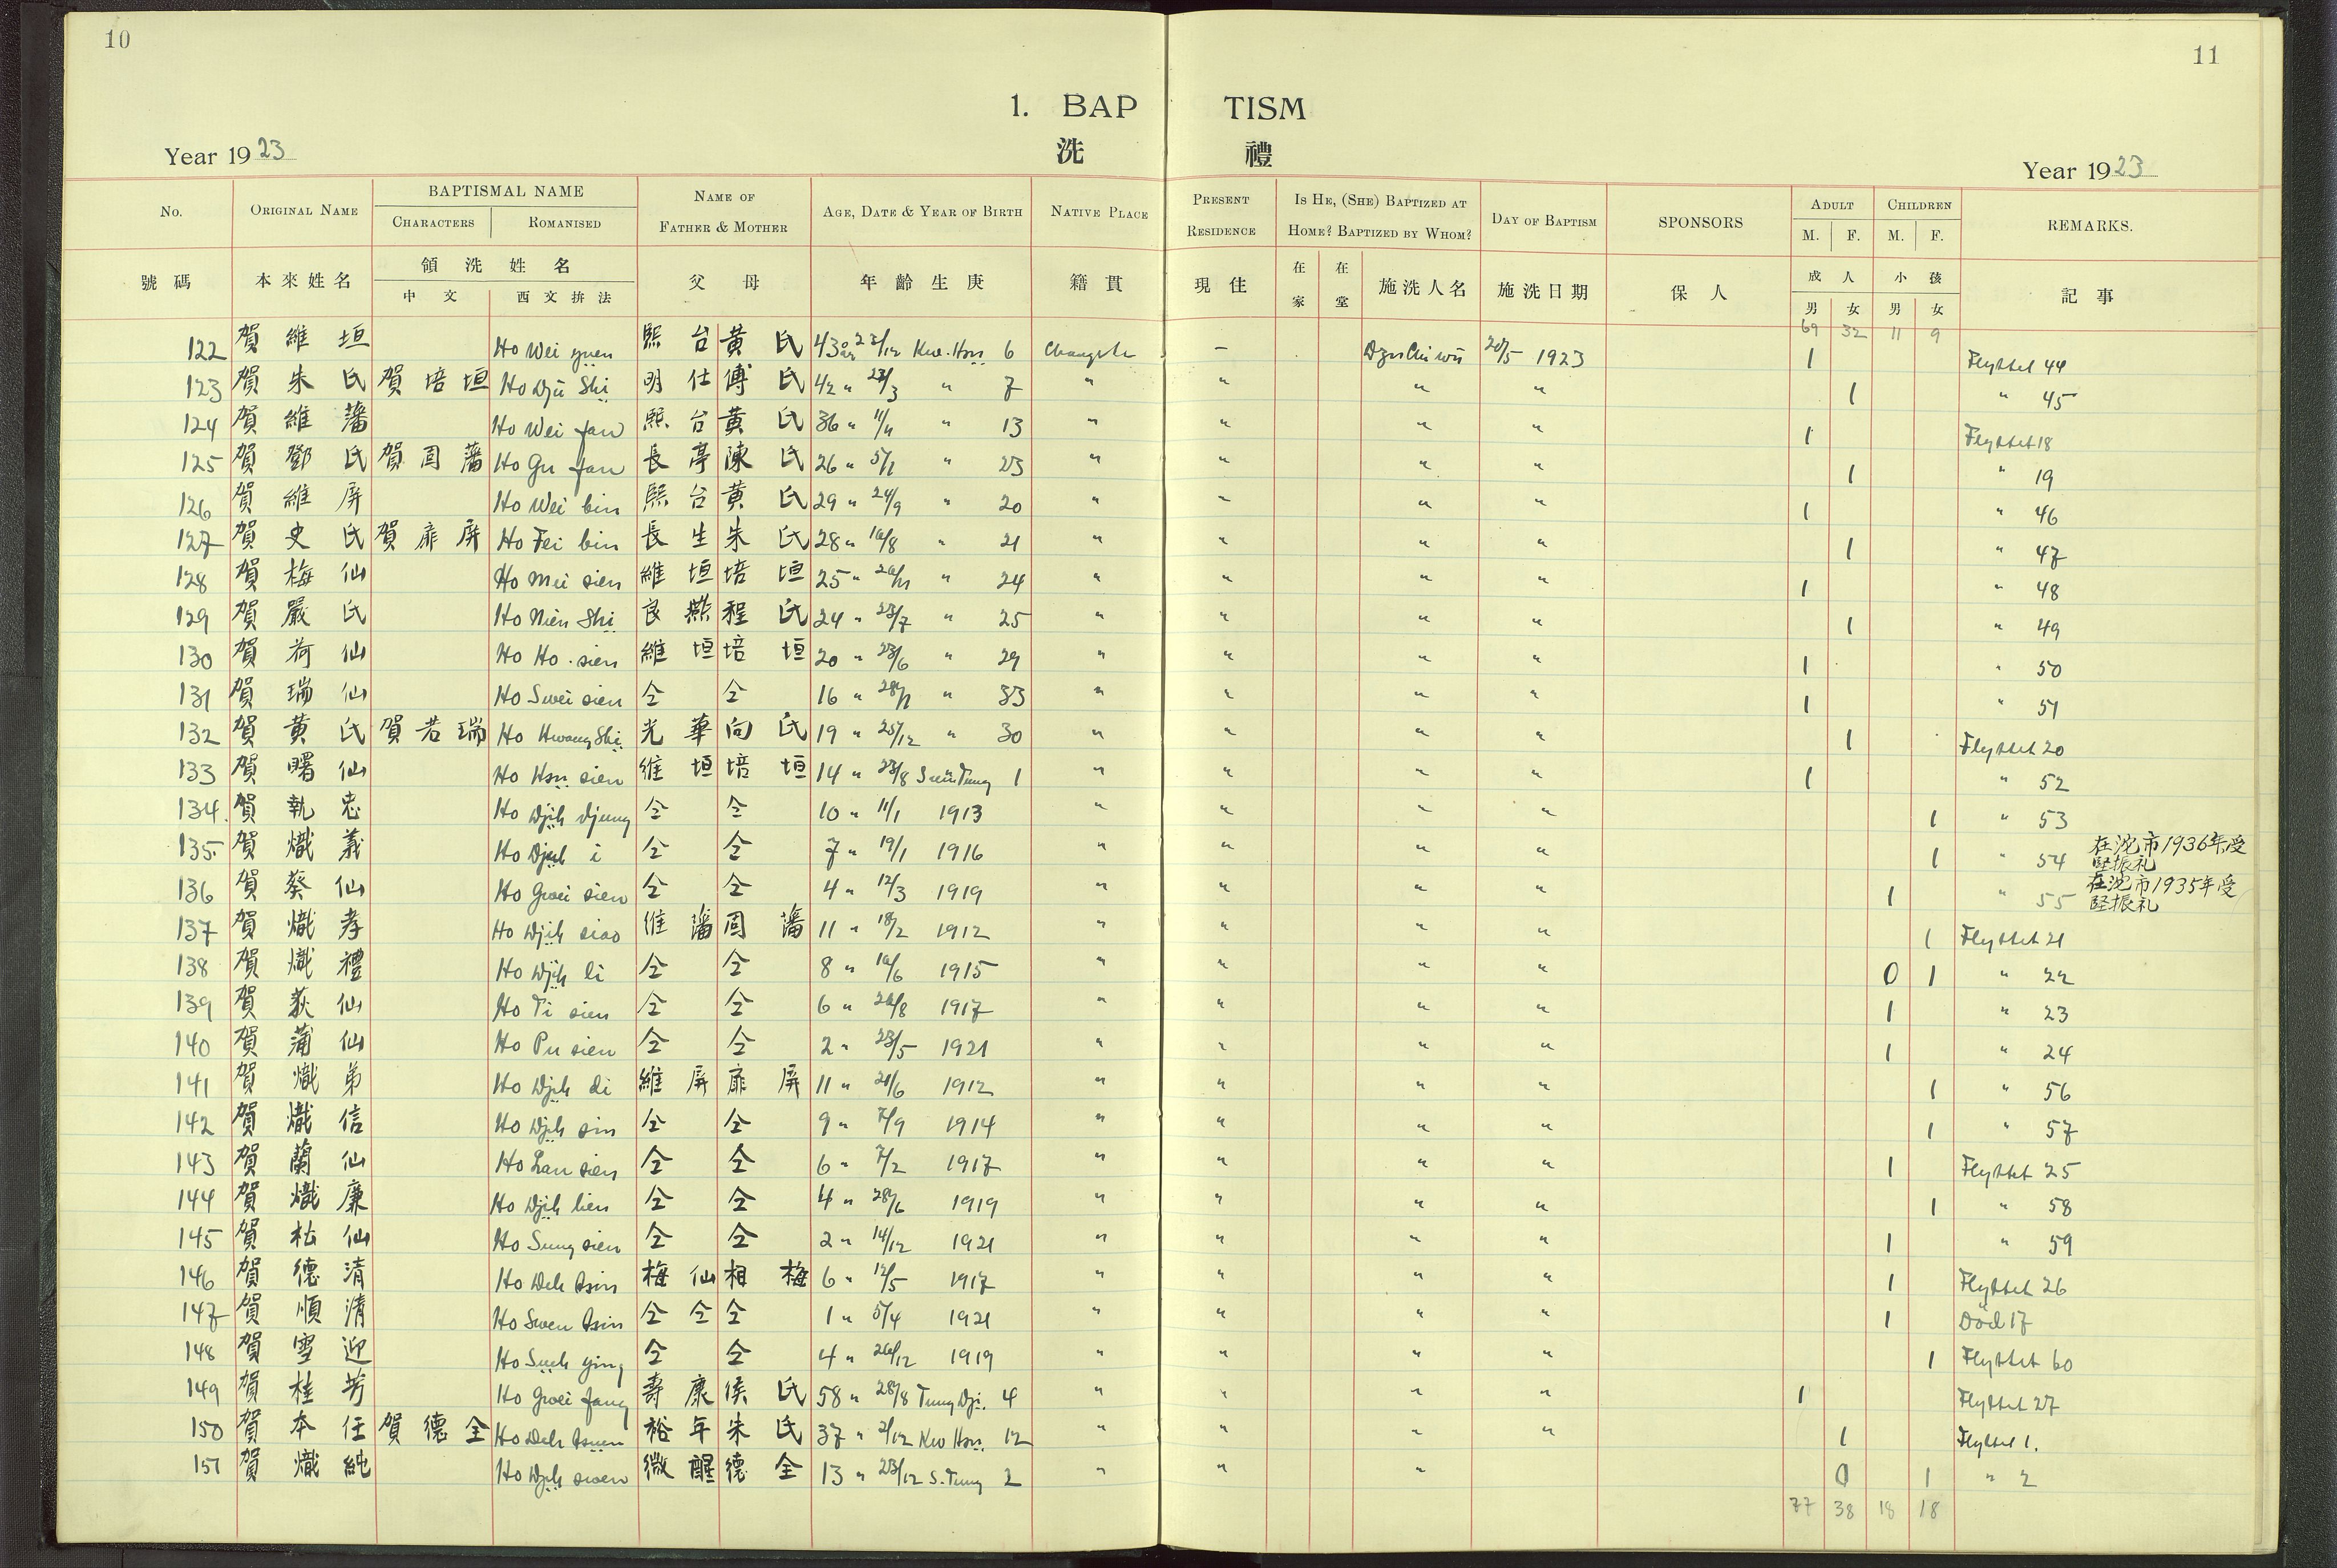 10
11
1. BAP TISM
洗 禮
Year 1923
Year 1923
No. ORIGINAL NAME BAPTISMAL NAME NAME OF FATHER & MOTHER AGE, DATE & YEAR OF BIRTH NATIVE PLACE PRESENT RESIDENCE IS HE, (SHE) BAPTIZED AT HOME? BAPTIZED BY WHOM? DAY OF BAPTISM SPONSORS ADULT CHILDREN REMARKS.
CHARACTERS ROMANISED M. F. M. F.
號碼 本來姓名 領洗姓名 父 母 年齡生庚 籍貫 現住 在家 在堂 施洗人名 施洗日期 保人 成人 小孩 記事
中文 西文拚法 男 女 男 女
69 32 11 9
122 賀維垣 Ho Wei yuen 熙台 黃氏 43 år 23/12 Kw. Hsü 6 Changsha – 20/5 1923 1 Flyttet 44
123 賀朱氏 賀培垣 Ho Djü Shi 明仕 傅氏 42 " 23/3 " 7 " " " " 1 " 45
124 賀維藩 Ho Wei fan 熙台 黃氏 36 " 11/11 " 13 " " " " 1 Flyttet 18
125 賀鄧氏 賀固藩 Ho Gu fan 長亭 陳氏 26 " 5/1 " 23 " " " " 1 " 19
126 賀維屏 Ho Wei bin 熙台 黃氏 29 " 24/9 " 20 " " " " 1 " 46
127 賀史氏 賀扉屏 Ho Fei bin 長生 朱氏 28 " 16/8 " 21 " " " " 1 " 47
128 賀梅仙 Ho Mei sien 維垣 培垣 25 " 26/11 " 24 " " " " 1 " 48
129 賀嚴氏 Ho Nien Shi 良燕 程氏 24 " 23/7 " 25 " " " " 1 " 49
130 賀荷仙 Ho Ho-sien 維垣 培垣 20 " 23/6 " 29 " " " " 1 " 50
131 賀瑞仙 Ho Swei sien 仝 仝 16 " " 33 " " " " 1 " 51
132 賀黃氏 賀若瑞 Ho Hwang Shi 光華 向氏 19 " 25/12 " 30 " " " " 1 Flyttet 20
133 賀曙仙 Ho Hsü sien 維垣 培垣 14 " 23/8 Suen Tung 1 " " " " 1 " 52
134. 賀執忠 Ho Djih djung 仝 仝 10 " 11/1 1913 " " " " 1 " 53
135. 賀熾義 Ho Djih i 仝 仝 7 " 19/1 1916 " " " " 1 " 54 在沱市1936年受堅振礼
136 賀葵仙 Ho Gwei sien 仝 仝 4 " 12/3 1919 " " " " 1 " 55 在沱市1935年受堅振礼
137 賀熾孝 Ho Djih siao 維藩 固藩 11 " 18/2 1912 " " " " 1 Flyttet 21
138 賀熾禮 Ho Djih li 仝 仝 8 " 16/6 1915 " " " " 0 1 " 22
139 賀荻仙 Ho Ti sien 仝 仝 6 " 26/8 1917 " " " " 1 " 23
140 賀蒲仙 Ho Pu sien 仝 仝 2 " 23/5 1921 " " " " 1 " 24
141 賀熾弟 Ho Djih di 維屏 扉屏 11 " 21/6 1912 " " " " 1 " 56
142 賀熾信 Ho Djih sin 仝 仝 9 " 7/9 1914 " " " " 1 " 57
143 賀蘭仙 Ho Lan sien 仝 仝 6 " 7/2 1917 " " " " 1 Flyttet 25
144 賀熾廉 Ho Djih lien 仝 仝 4 " 28/6 1919 " " " " 1 " 58
145 賀松仙 Ho Sung sien 仝 仝 2 " 14/12 1921 " " " " 1 " 59
146 賀德清 Ho Deh tsin 梅仙 相梅 6 " 12/5 1917 " " " " 1 Flyttet 26
147 賀順清 Ho Swen tsin 仝仝 仝 1 " 5/4 1921 " " " " 1 Död 17
148 賀雪迎 Ho Sueh ying 仝 仝 4 " 26/12 1919 " " " " 1 Flyttet 60
149 賀桂芳 Ho Gwei fang 壽康 侯氏 58 " 28/8 Tung Dji. 4 " " " " 1 Flyttet 27
150 賀本任 賀德全 Ho Deh tsuen 裕年 朱氏 37 " 2/12 Kw Hsü. 12 " " " " 1 Flyttet 1.
151 賀熾純 Ho Djih swen 徵醒 德全 13 " 23/12 S. Tung 2 " " " 0 1 " 2
77 38 18 18